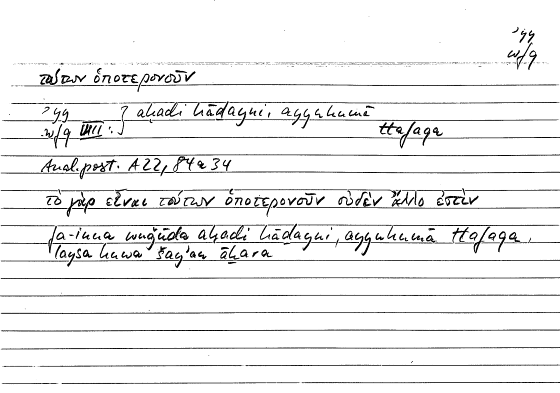 ʾyy
wfq
τούτων ὁποτερονοῦν
ʾyy
wfq VIII : } aḥadi hāḏayni, ayyuhumā
ttafaqa
Anal. post. A 22, 84a34
τὸ γὰρ εἶναι τούτων ὁποτερονοῦν οὐδὲν ἄλλο ἐστὶν
fa-inna wuǧūda aḥadi hāḏayni, ayyuhumā ttafaqa,
laysa huwa šayʾan āḫara